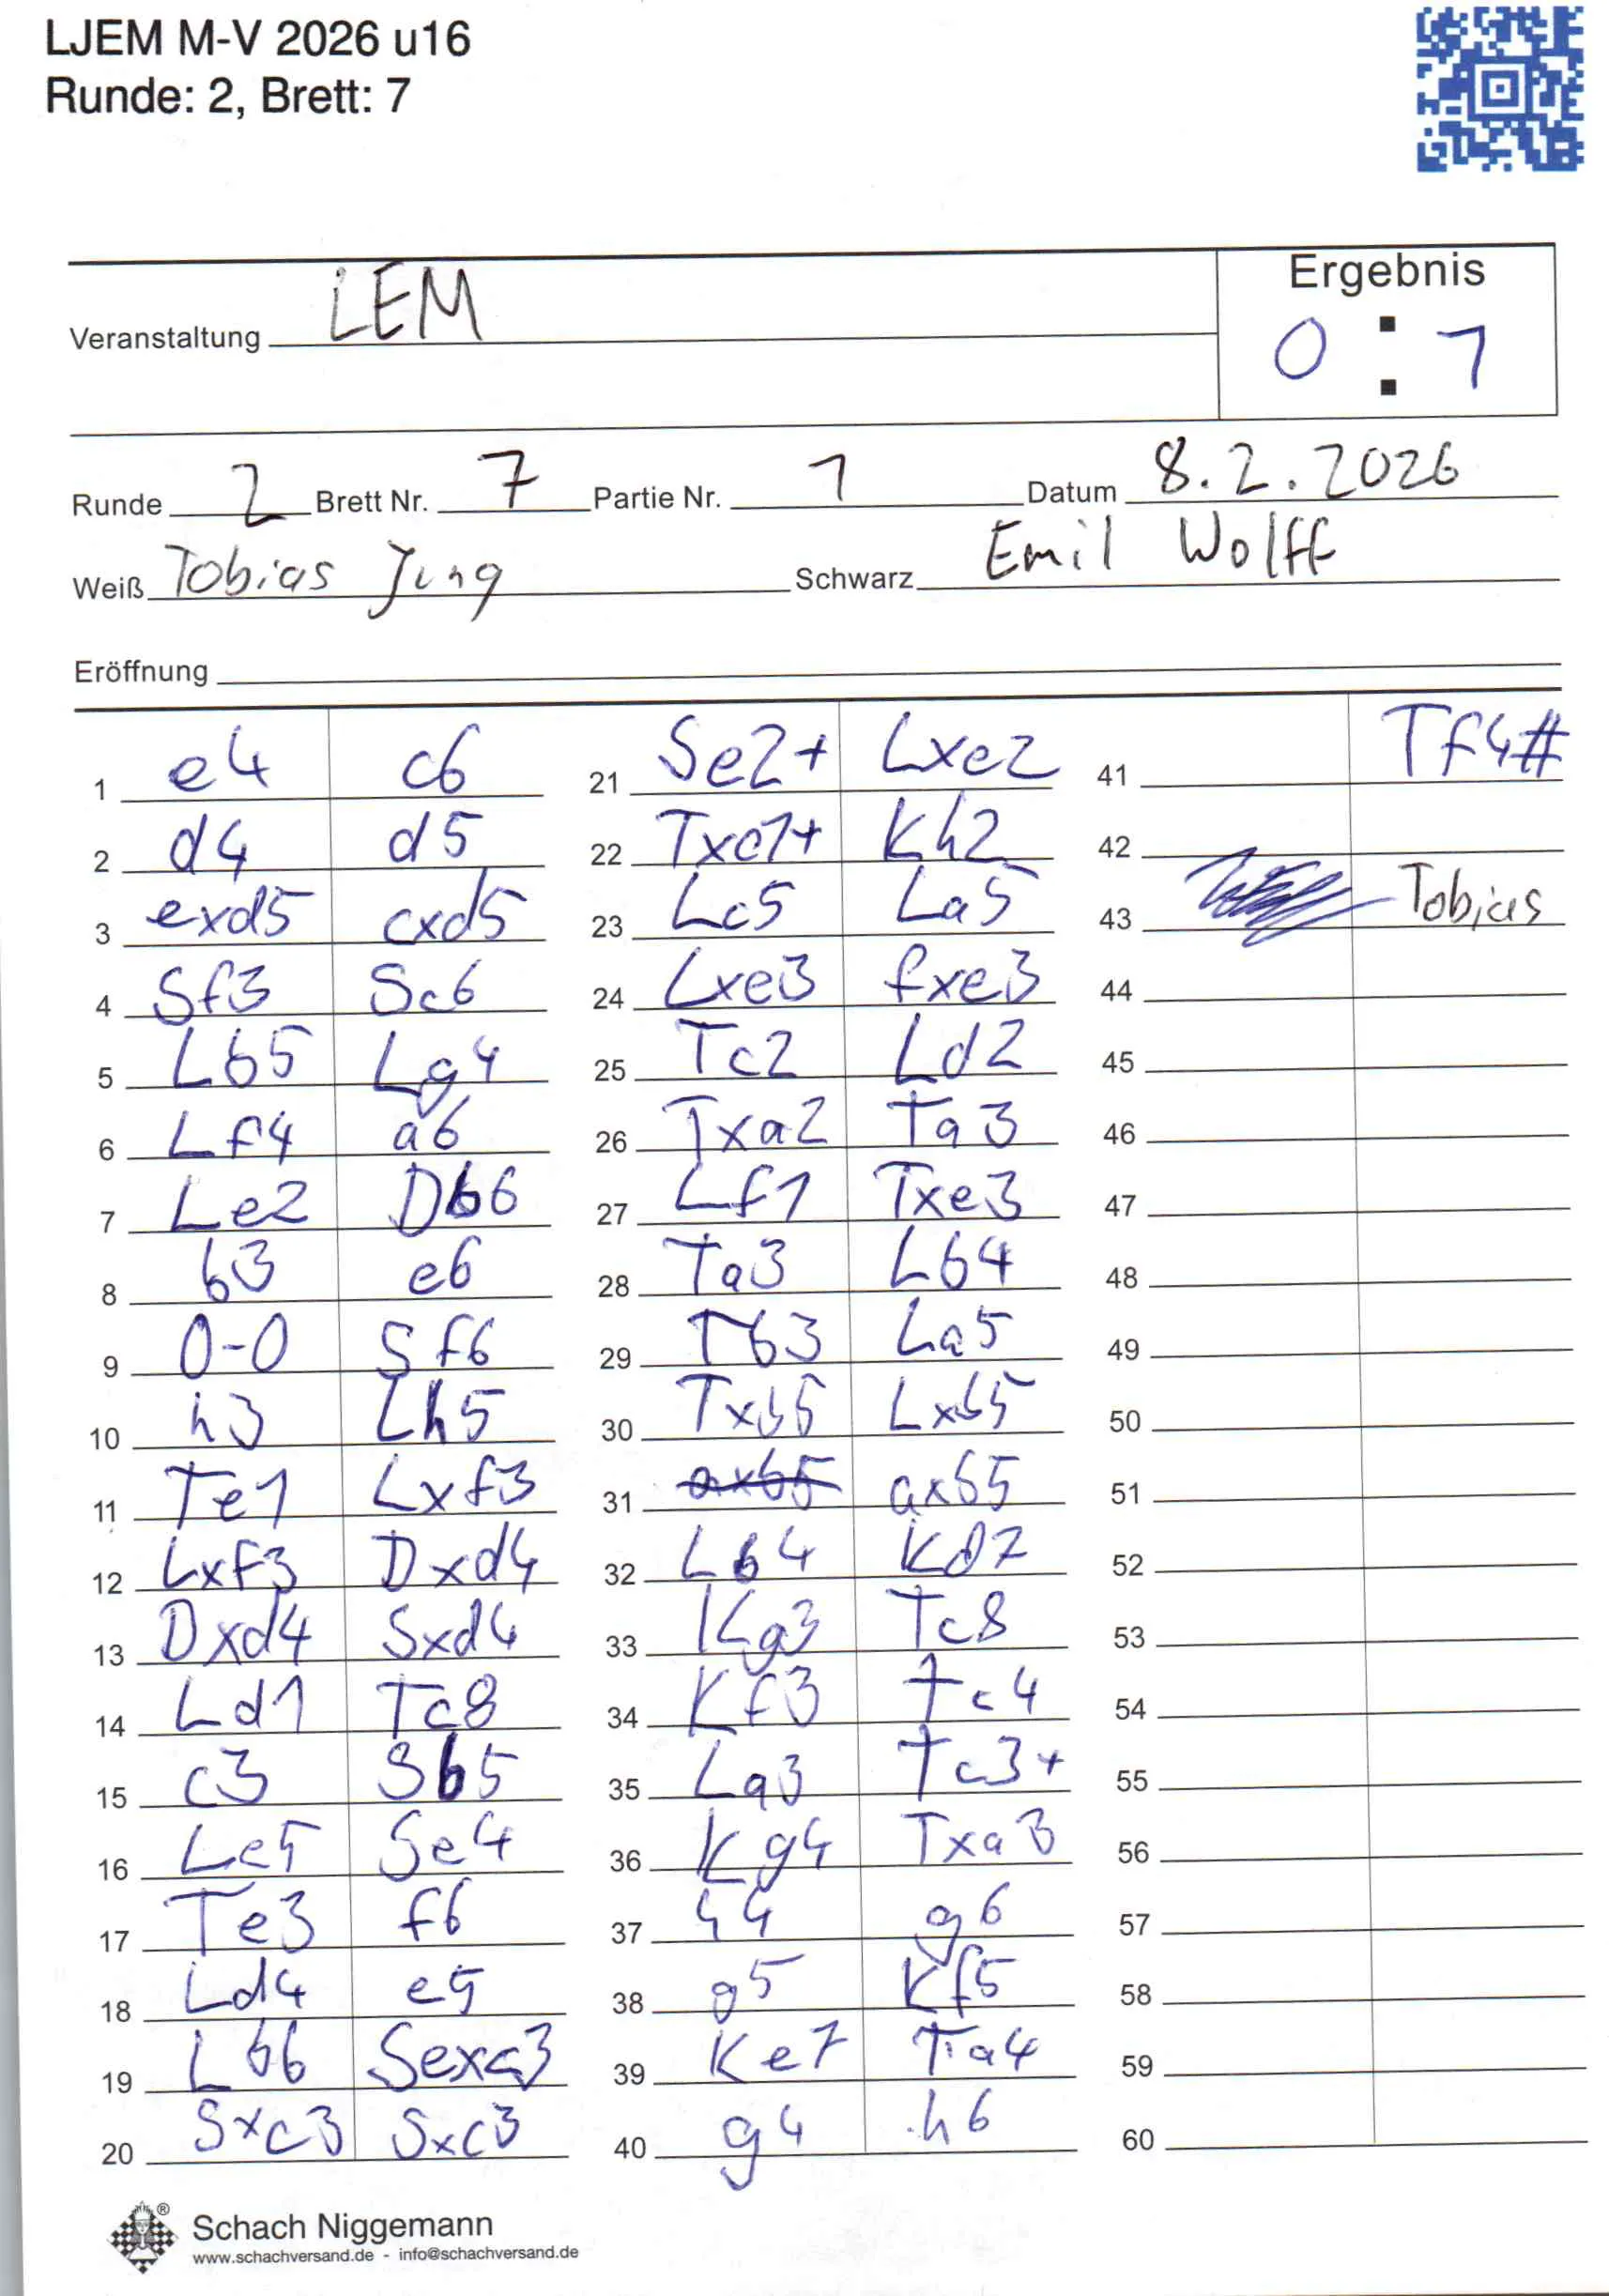 LJEM M-V 2026 u16
Runde: 2, Brett: 7
Ergebnis
Veranstaltung LEM
0 : 1
Runde 2 Brett Nr. 7 Partie Nr. 1 Datum 8.2.2026
Weiß Tobias Jung Schwarz Emil Wolff
Eröffnung
1 e4 c6
2 d4 d5
3 exd5 cxd5
4 Sf3 Sc6
5 Lb5 Lg4
6 Lf4 a6
7 Le2 Db6
8 b3 e6
9 0-0 Sf6
10 h3 Lh5
11 Te1 Lxf3
12 Lxf3 Dxd4
13 Dxd4 Sxd4
14 Ld1 Tc8
15 c3 Sb5
16 Le5 Se4
17 Te3 f6
18 Ld4 e5
19 Lb6 Sexc3
20 Sxc3 Sxc3
21 Se2+ Lxe2
22 Txc1+ Kh2
23 Lc5 La5
24 Lxe3 fxe3
25 Tc2 Ld2
26 Txa2 Ta3
27 Lf1 Txe3
28 Ta3 Lb4
29 Tb3 La5
30 Txb5 Lxb5
31 axb5 axb5
32 Lb4 Kd7
33 Kg3 Tc8
34 Kf3 Tc4
35 La3 Tc3+
36 Kg4 Txa3
37 h4 g6
38 g5 Kf5
39 Ke7 Ta4
40 g4 h6
41 Tf4#
42
43 Tobias
44
45
46
47
48
49
50
51
52
53
54
55
56
57
58
59
60
Schach Niggemann
www.schachversand.de - info@schachversand.de